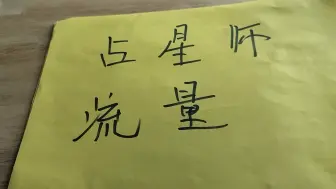 占星师
流量